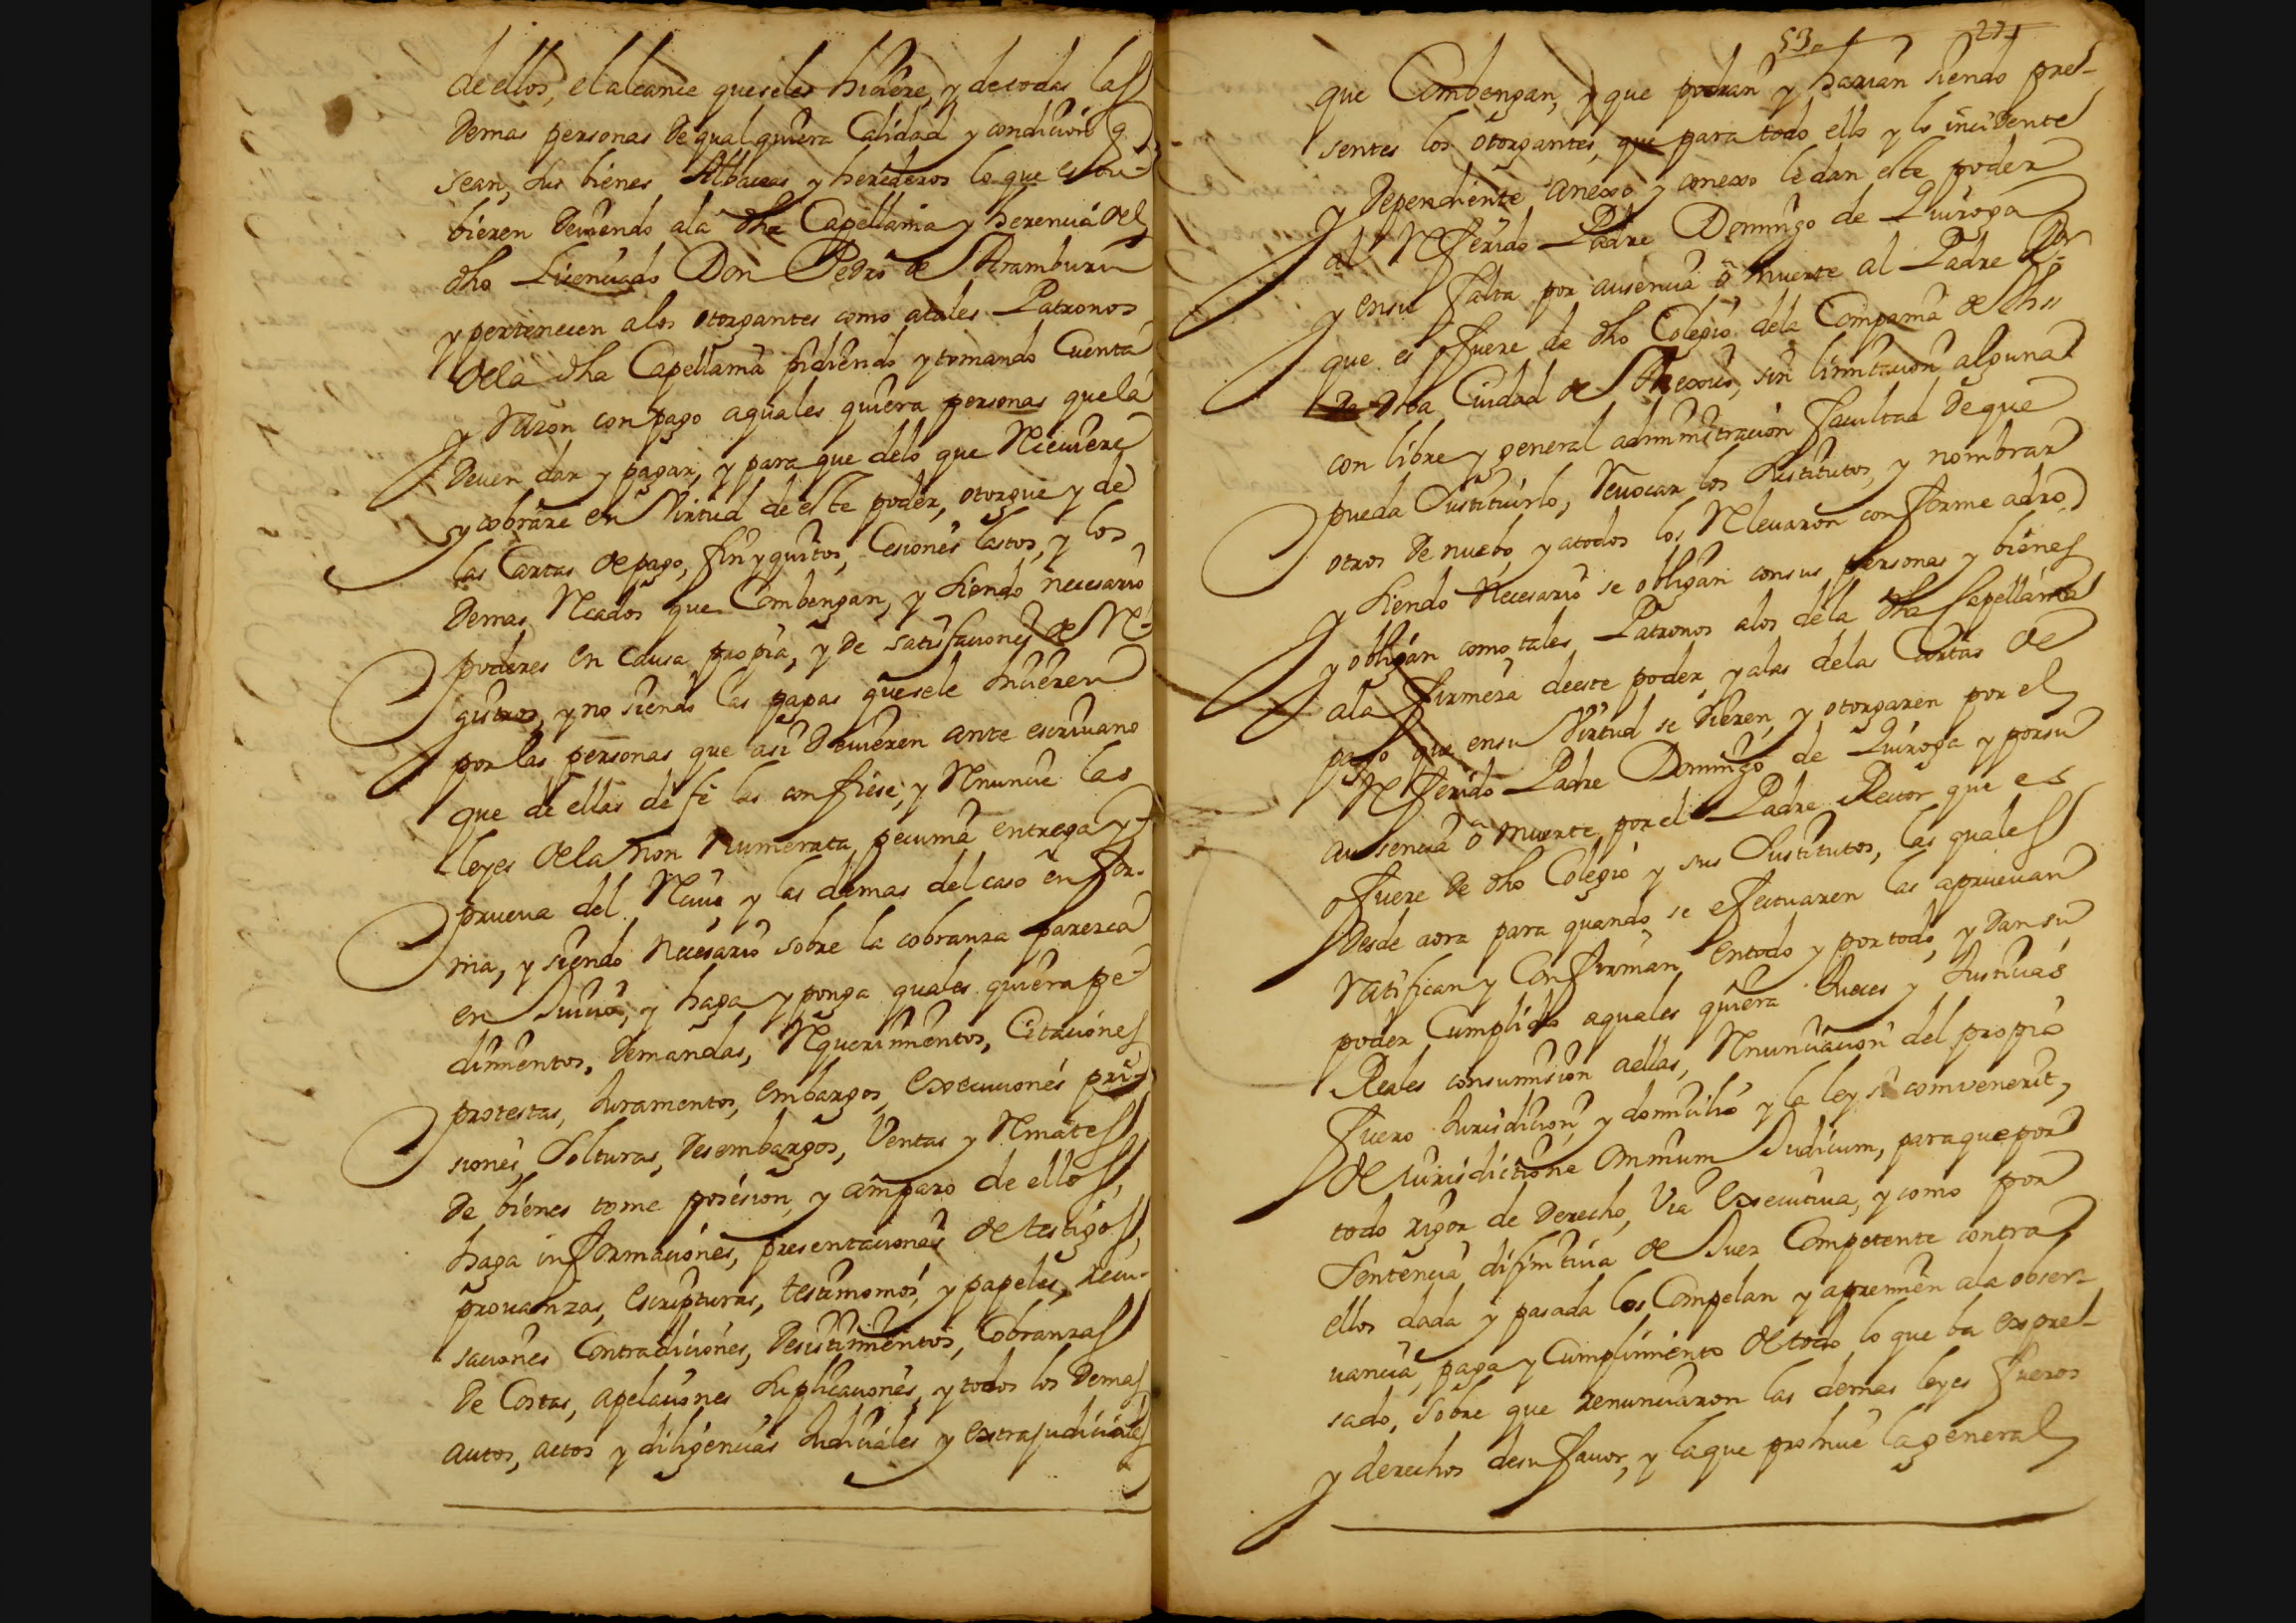 de ellos, el alcance que se les hiziere, y de todas las
demas personas de qualquiera Calidad y condicion q.
sean, sus bienes Albaceas y herederos lo que estu-
bieren deviendo a la dha Capellania y herencia del
dho Licenciado Don Pedro de Aramburu
y pertenecen a los otorgantes como a tales Patronos
de la dha Capellania pidiendo y tomando Cuenta
y Razon con pago a quales quiera personas que la
deven dar y pagar, y para que de lo que Reciviere
y cobrare en Virtud de este poder, otorgue y dé
las Cartas de pago, finyquitos, Cesiones lastos, y los
demas Recados que Combengan, y siendo necesario
poderes en causa propia, y de satisfaciones de Re-
gistros, y no siendo las pagas que se le hizieren
por las personas que asi devieren ante escrivano
que de ellas de fe las confiese, y Renuncie las
leyes de la non Numerata pecunia entrega y
prueva del Recivo y las demas del caso en for-
ma, y siendo necesario sobre la cobranza parezca
en Juicio, y haga y ponga quales quiera pe-
dimentos, demandas, Requerimientos, Citaciones
protestas, Juramentos, embargos, execuciones pri-
siones, Solturas, desembargos, Ventas y Remates
de bienes tome posesion, y amparo de ellos,
haga informaciones, presentaciones de testigos,
provanzas, escripturas, testimonios, y papeles, recu-
saciones Contradiciones, desistimientos, Cobranzas
de Costas, apelaciones Suplicaciones, y todos los demas
autos, actos y diligencias Judiciales y extrajudiciales
53
221
que Combengan, y que podran y harian siendo pre-
sentes los otorgantes, que para todo ello y lo incidente
y dependiente anexo y conexo le dan este poder
al Referido Padre Domingo de Quiroga
y en su falta por ausencia ô muerte al Padre Rr.
que es o fuere de dho Colegio de la Compania de Jhs
de dha Ciudad de Mexico, sin limitacion alguna
con libre y general administracion facultad de que
pueda Sustituirlo, Revocar los Sustitutos, y nombrar
otros de nuebo, y a todos los Relevaron conforme a dro
y siendo Necesario se obligan con sus personas y bienes
y obligan como tales Patronos a los de la dha Capellania
a la firmeza de este poder, y a las de las Cartas de
pago que en su Virtud se dieren, y otorgaren por el
Referido Padre Domingo de Quiroga y por su
ausencia ô muerte por el Padre Rector que es
o fuere de dho Colegio y sus Sustitutos, las quales
desde aora para quando se efectuaren las aprueuan
Ratifican y Confirman en todo y por todo, y dan su
poder Cumplido a quales quiera Jueces y Justicias
Reales con sumision a ellas, Renunciacion del propio
fuero Jurisdicion, y domicilio y la ley si comvenerit,
de Jurisdictione Omnium Judicum, para que por
todo rigor de derecho, Via executiva, y como por
Sentencia difinitiva de Juez Competente contra
ellos dada y pasada los Compelan y apremien a la obser-
vancia, paga y Cumplimiento de todo lo que ba expre-
sado, sobre que renunciaron las demas leyes fueros
y derechos de su favor, y la que prohive la general